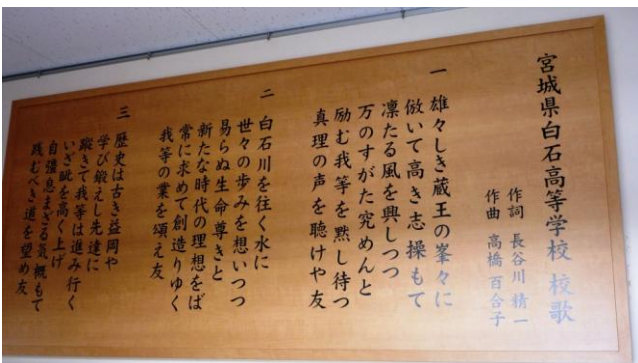 宮城県白石高等学校 校歌
作詞 長谷川 精一
作曲 高橋 百合子
一 雄々しき蔵王の峯々に
倣いて高き志操もて
凛たる風を興しつつ
万のすがた究めんと
励む我等を黙し待つ
真理の声を聴けや友
二 白石川を往く水に
世々の歩みを想いつつ
易らぬ生命尊きと
新たな時代の理想をば
常に求めて創造りゆく
我等の業を頌え友
三 歴史は古き益岡や
学び鍛えし先達に
蹤きて我等は進み行く
いざ眦を高く上げ
自彊息まざる気概もて
践むべき道を望め友